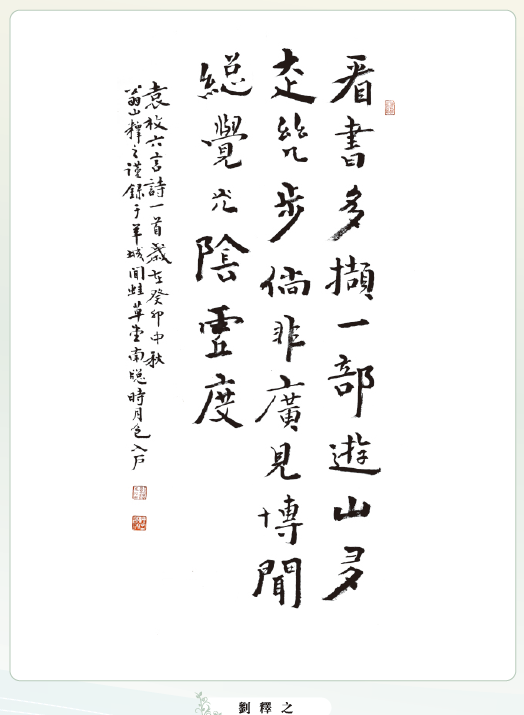 看書多擷一部遊山多
走幾步倘非廣見博聞
總覺光陰虛度
袁枚六言詩一首歲在癸卯中秋
翁山釋之謹錄于羊城聞蛙草堂南牕時月色入戶
劉釋之